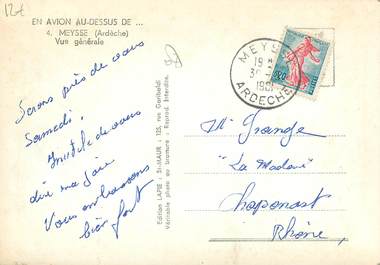 12et
EN AVION AU-DESSUS DE ...
4. MEYSSE (Ardèche)
Vue générale
Serons près de vous
Samedi.
Inutile de vous
dire ma joie
Vous embrassons
bien fort
Edition LAPIE - St-MAUR - 123, rue Garibaldi
Véritable photo au bromure - Reprod. Interdite.
MEYSSE
19
30
1961
ARDECHE
Mr Grange
"La Madone"
Chaponost
Rhône,